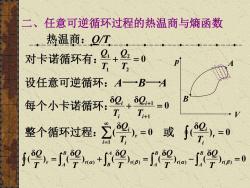 二、任意可逆循环过程的热温商与熵函数
热温商：Q/T
对卡诺循环有：Q₁/T₁ + Q₂/T₂ = 0
设任意可逆循环：A—B—A
每个小卡诺循环：δQᵢ/Tᵢ + δQᵢ₊₁/Tᵢ₊₁ = 0
整个循环过程：∑_{i=1}^{∞} (δQᵢ/Tᵢ)ᵣ = 0 或 ∮(δQᵢ/Tᵢ)ᵣ = 0
∮(δQ/T)ᵣ = ∫_A^B (δQ/T)_{r(α)} + ∫_B^A (δQ/T)_{r(β)} = ∫_A^B (δQ/T)_{r(α)} − ∫_A^B (δQ/T)_{r(β)} = 0
p
A
B
V